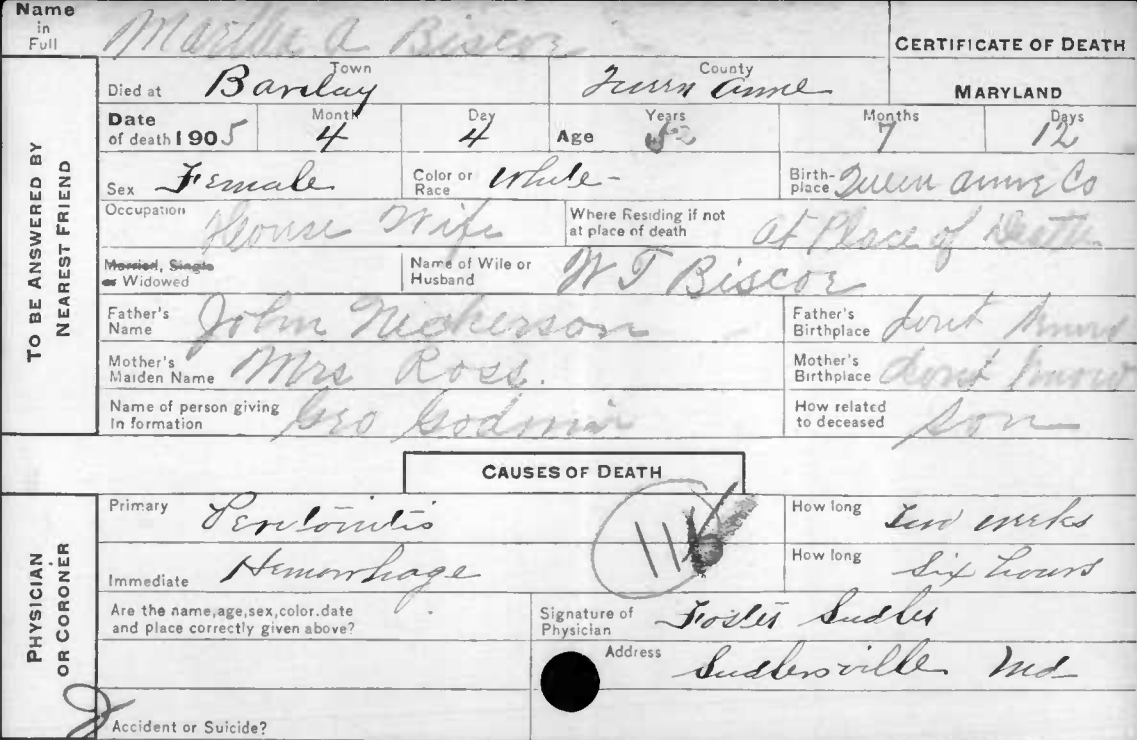 Name in Full Martha A Biscoe
CERTIFICATE OF DEATH
TO BE ANSWERED BY NEAREST FRIEND
Died at Barclay Town Queen Anne County MARYLAND
Date of death 1905 Month 4 Day 4 Age Years Months 7 Days 12
Sex Female Color or Race White - Birth-place Queen Anne Co
Occupation House Wife Where Residing if not at place of death At Place of Death
Married, Single or Widowed Name of Wife or Husband W T Biscoe
Father's Name John Nickerson Father's Birthplace dont know
Mother's Maiden Name Mrs Ross. Mother's Birthplace dont know
Name of person giving In formation Geo How related to deceased Son
CAUSES OF DEATH
PHYSICIAN OR CORONER
Primary Peritonitis How long weeks
Immediate Hemorrhage How long Six hours
Are the name,age,sex,color.date and place correctly given above? Signature of Physician Foster Sudler
Address Sudlersville Md
Accident or Suicide?